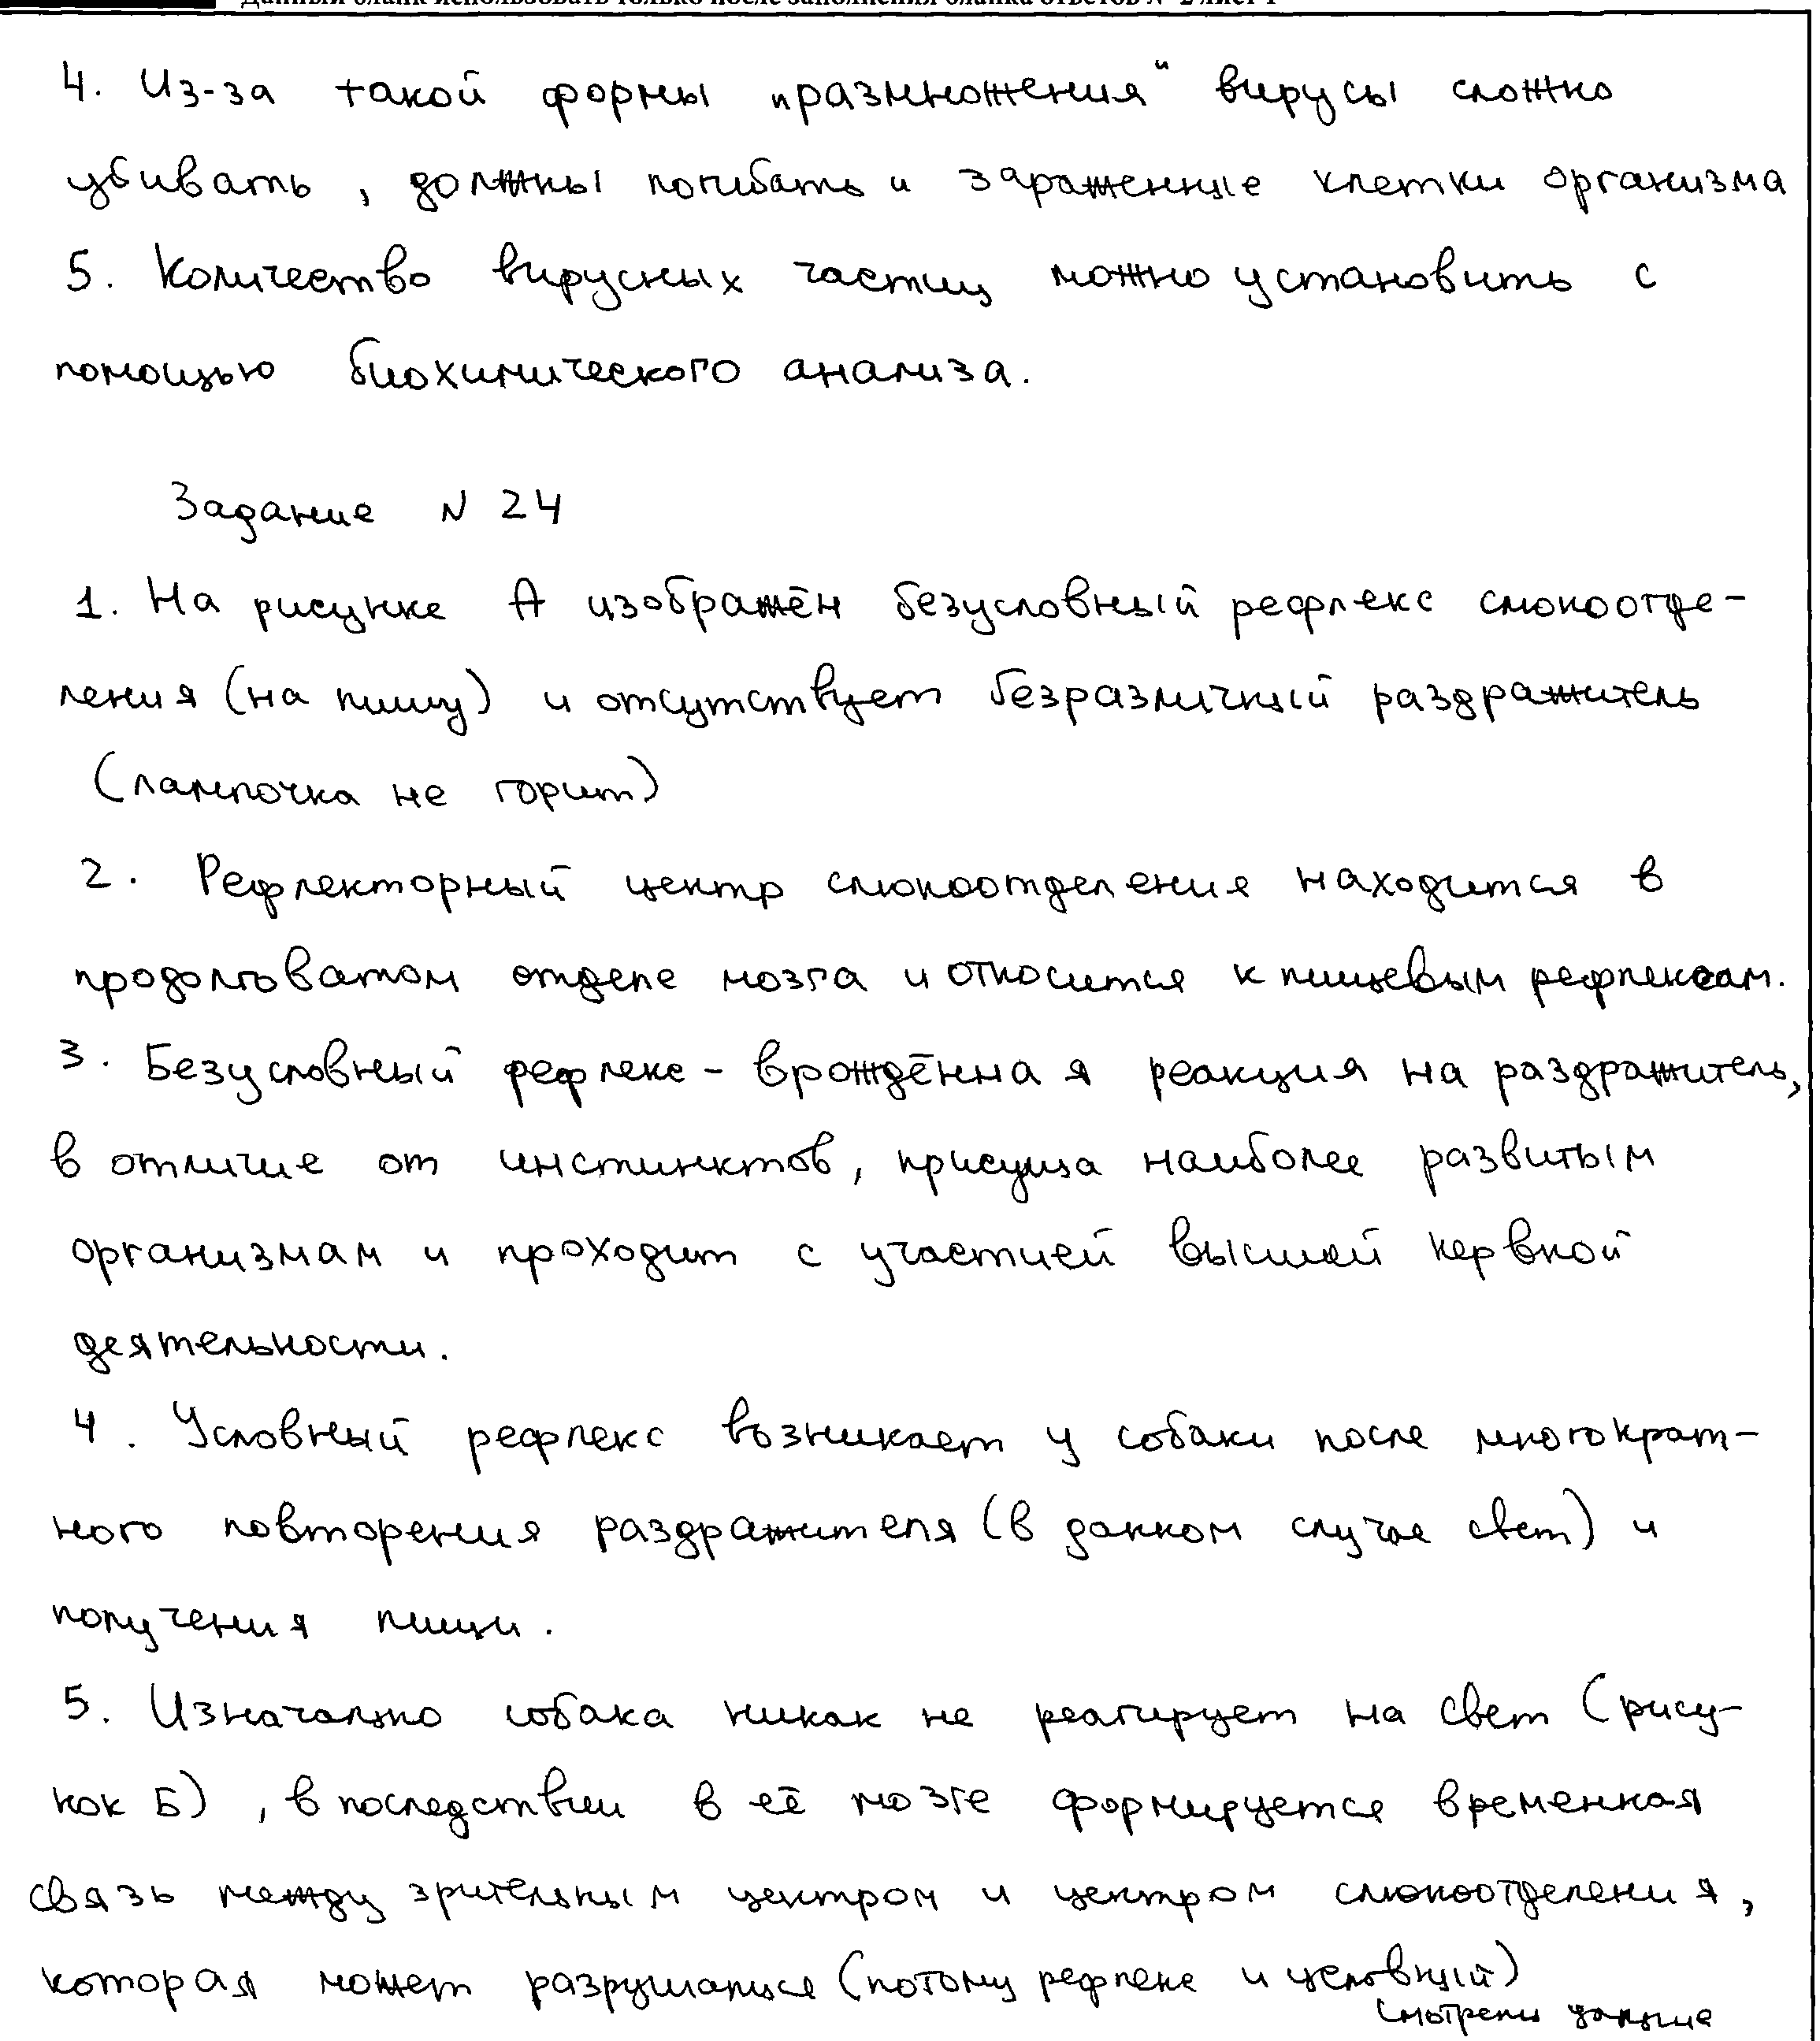 Данный бланк использовать только после заполнения бланка ответов № 2 лист 1
4. Из-за такой формы „размножения“ вирусы сложно
убивать, должны погибать и зараженные клетки организма
5. Количество вирусных частиц можно установить с
помощью биохимического анализа.
Задание N 24
1. На рисунке А изображён безусловный рефлекс слюноотде-
ления (на пищу) и отсутствует безразличный раздражитель
(лампочка не горит)
2. Рефлекторный центр слюноотделения находится в
продолговатом отделе мозга и относится к пищевым рефлексам.
3. Безусловный рефлекс - врождённая реакция на раздражитель,
в отличие от инстинктов, присуща наиболее развитым
организмам и проходит с участией высшей нервной
деятельности.
4. Условный рефлекс возникает у собаки после многократ-
ного повторения раздражителя (в данном случае свет) и
получения пищи.
5. Изначально собака никак не реагирует на свет (рису-
нок Б), в последствии в её мозге формируется временная
связь между зрительным центром и центром слюноотделения,
которая может разрушаться (потому рефлекс и условный)
Смотрели дальше